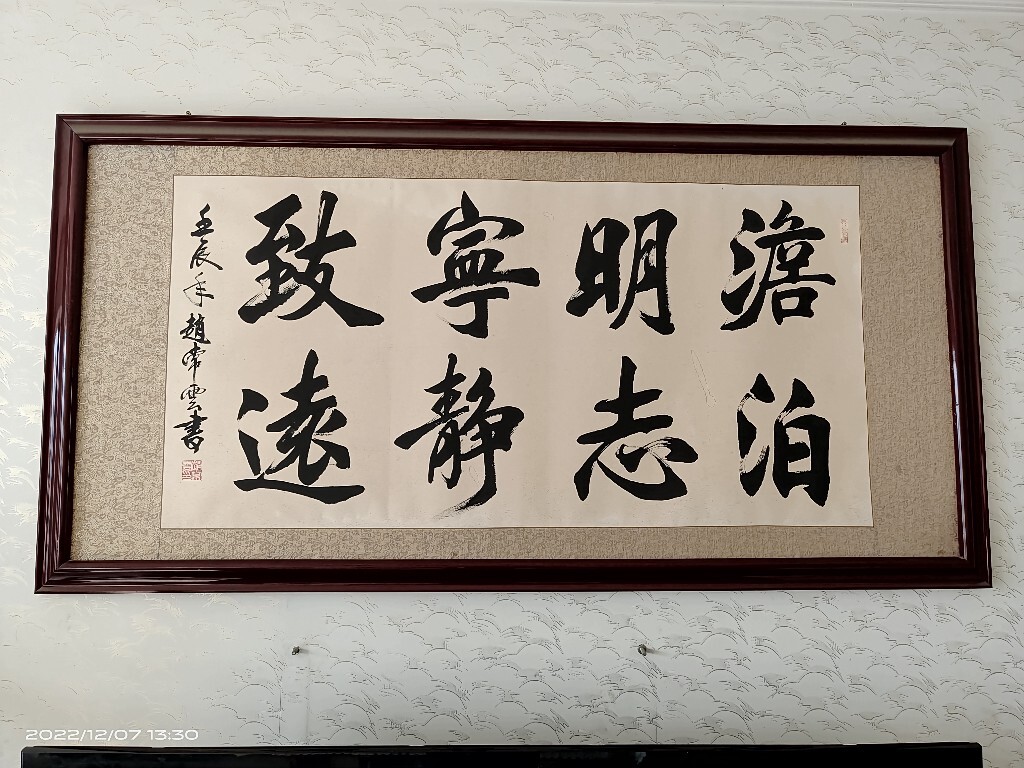 澹泊
明志
寧静
致遠
壬辰年趙常雲書
2022/12/07 13:30